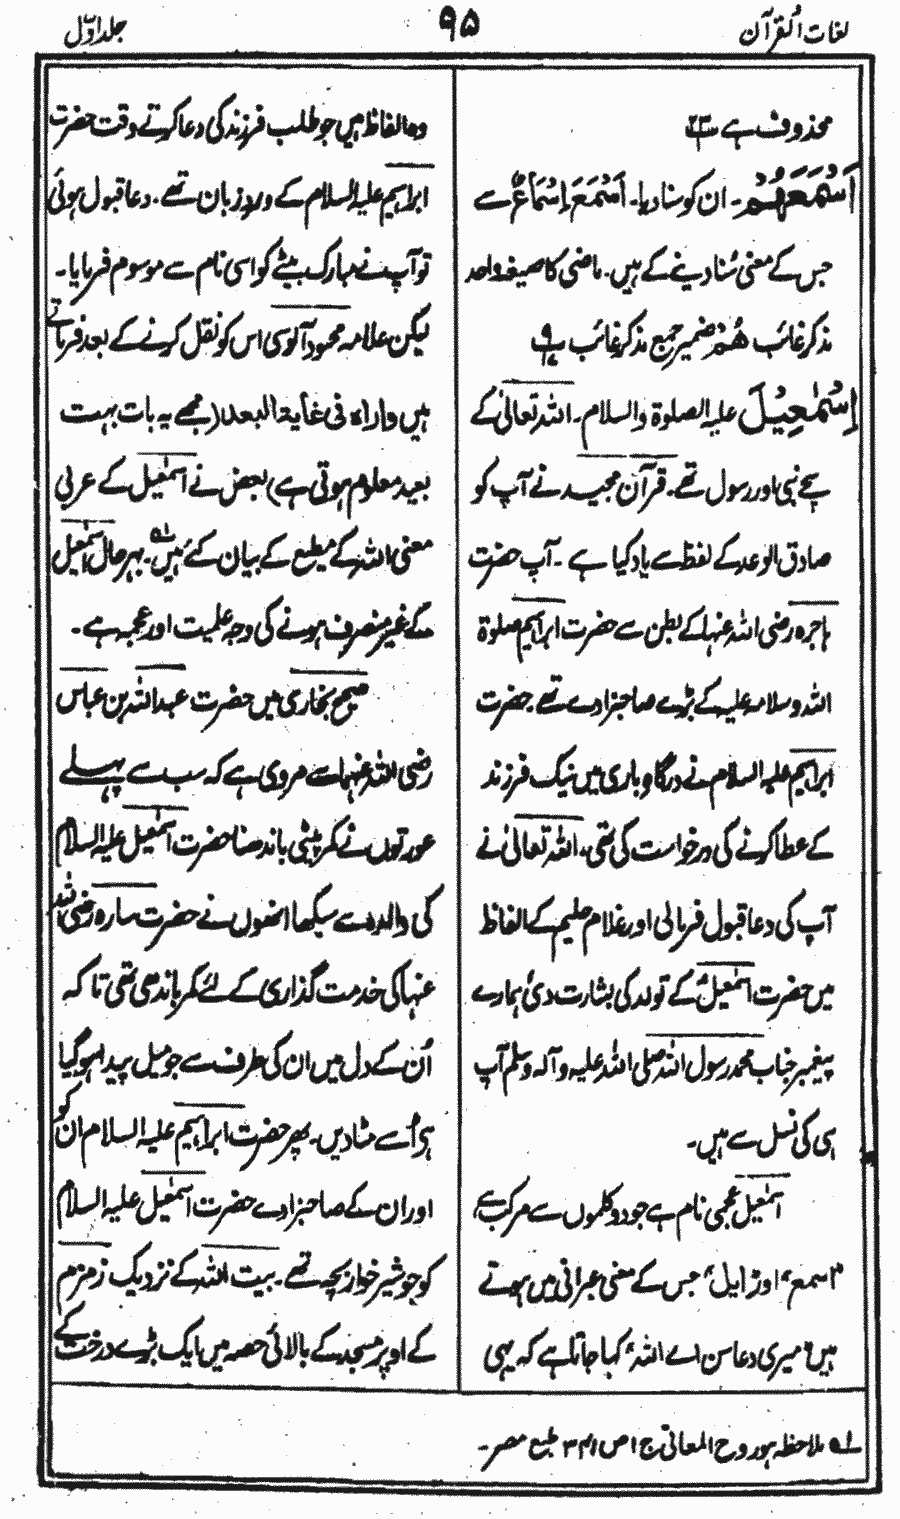 لغات القرآن
۹۵
جلد اوّل
محذوف ہے
اَسْمَعَهُمْ۔ ان کو سنا دیا۔ اَسْمَعَ اِسْمَاعٌ سے
جس کے معنی سُنا دینے کے ہیں۔ ماضی کا صیغہ واحد
مذکر غائب هُمْ ضمیر جمع مذکر غائب
اِسْمٰعِیْلَ علیہ الصلوۃ والسلام۔ اللہ تعالیٰ کے
سچے نبی اور رسول تھے۔ قرآن مجید نے آپ کو
صادق الوعد کے لفظ سے یاد کیا ہے۔ آپ حضرت
ہاجرہ رضی اللہ عنہا کے بطن سے حضرت ابراہیم صلوۃ
اللہ وسلامہ علیہ کے بڑے صاحبزادے تھے۔ حضرت
ابراہیم علیہ السلام نے درگاہ باری میں نیک فرزند
کے عطا کرنے کی درخواست کی تھی۔ اللہ تعالیٰ نے
آپ کی دعا قبول فرمالی اور غلام حلیم کے الفاظ
میں حضرت اسمٰعیلؑ کے تولد کی بشارت دی، ہمارے
پیغمبر جناب محمد رسول اللہ صلی اللہ علیہ وآلہ وسلم آپ
ہی کی نسل سے ہیں۔
اسمٰعیل عجمی نام ہے جو دو کلموں سے مرکب ہے،
"اسمع" اور "ایل" جس کے معنی عبرانی میں ہوتے
ہیں "میری دعا سن اے اللہ" کہا جاتا ہے کہ یہی
وہ الفاظ ہیں جو طلب فرزند کی دعا کرتے وقت حضرت
ابراہیم علیہ السلام کے ورد زبان تھے۔ دعا قبول ہوئی
تو آپ نے مبارک بیٹے کو اسی نام سے موسوم فرمایا۔
لیکن علامہ محمود آلوسی اس کو نقل کرنے کے بعد فرماتے
ہیں واراہ فی غایۃ البعد (مجھے یہ بات بہت
بعید معلوم ہوتی ہے) بعض نے اسمٰعیل کے عربی
معنی اللہ کے مطیع کے بیان کئے ہیں۔۵۱ بہرحال اسمٰعیل
کے غیر منصرف ہونے کی وجہ علمیت اور عجمہ ہے۔
صحیح بخاری میں حضرت عبداللہ بن عباس
رضی اللہ عنہما سے مروی ہے کہ سب سے پہلے
عورتوں نے کمر پٹی باندھنا حضرت اسمٰعیل علیہ السلام
کی والدہ سے سیکھا انھوں نے حضرت سارہ رضی اللہ
عنہا کی خدمت گذاری کے لئے کمر باندھی تھی تاکہ
اُن کے دل میں ان کی طرف سے جو میل پیدا ہو گیا
ہے اُسے مٹا دیں۔ پھر حضرت ابراہیم علیہ السلام ان کو
اور ان کے صاحبزادے حضرت اسمٰعیل علیہ السلام
کو جو شیر خوار بچہ تھے۔ بیت اللہ کے نزدیک زمزم
کے اوپر مسجد کے بالائی حصہ میں ایک بڑے درخت کے
۵۱ ملاحظہ ہو روح المعانی ج ۱ ص ۳۴۱ طبع مصر۔